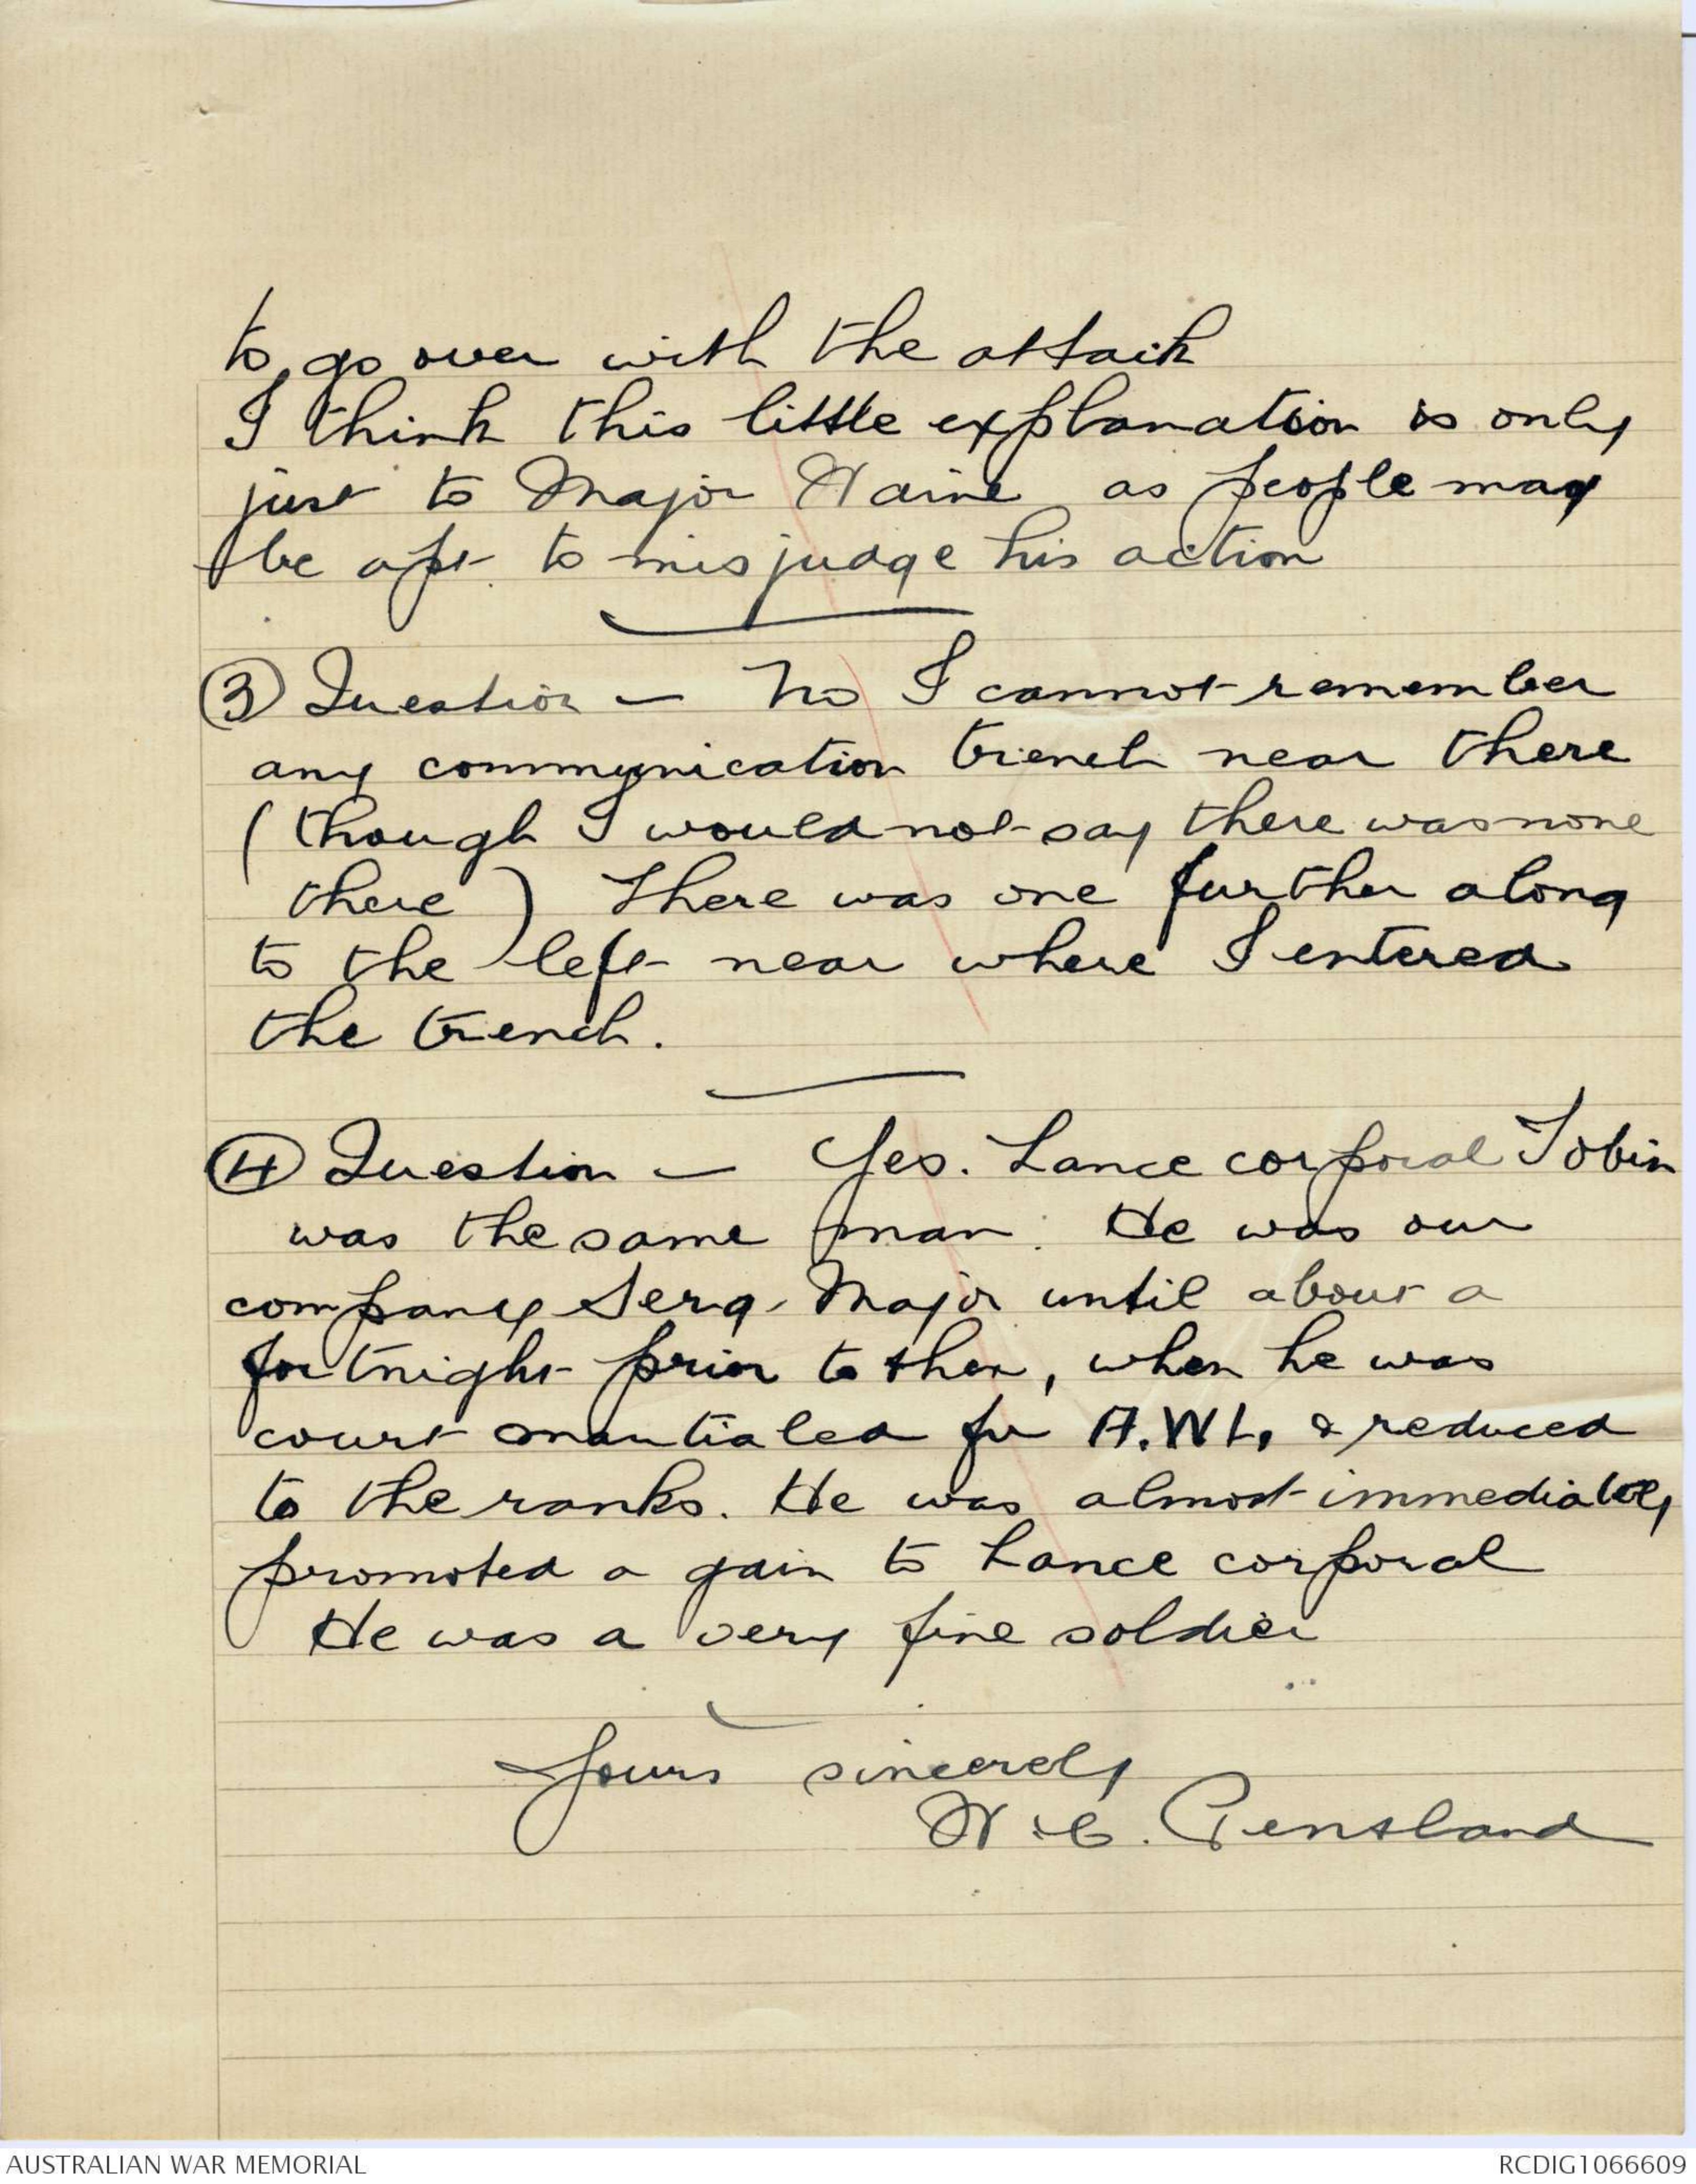 to go over with the attack
I think this little explanation is only
just to Major Waine as people may
be apt to misjudge his action
③ Question — No I cannot remember
any communication trench near there
(though I would not say there was none
there) There was one further along
to the left near where I entered
the trench.
④ Question — Yes. Lance corporal Tobin
was the same man. He was our
company Serg. Major until about a
fortnight prior to then, when he was
court martialed for A.W.L. & reduced
to the ranks. He was almost immediately
promoted a gain to Lance corporal
He was a very fine soldier
Yours sincerely
W. C. Pentland
AUSTRALIAN WAR MEMORIAL
RCDIG1066609